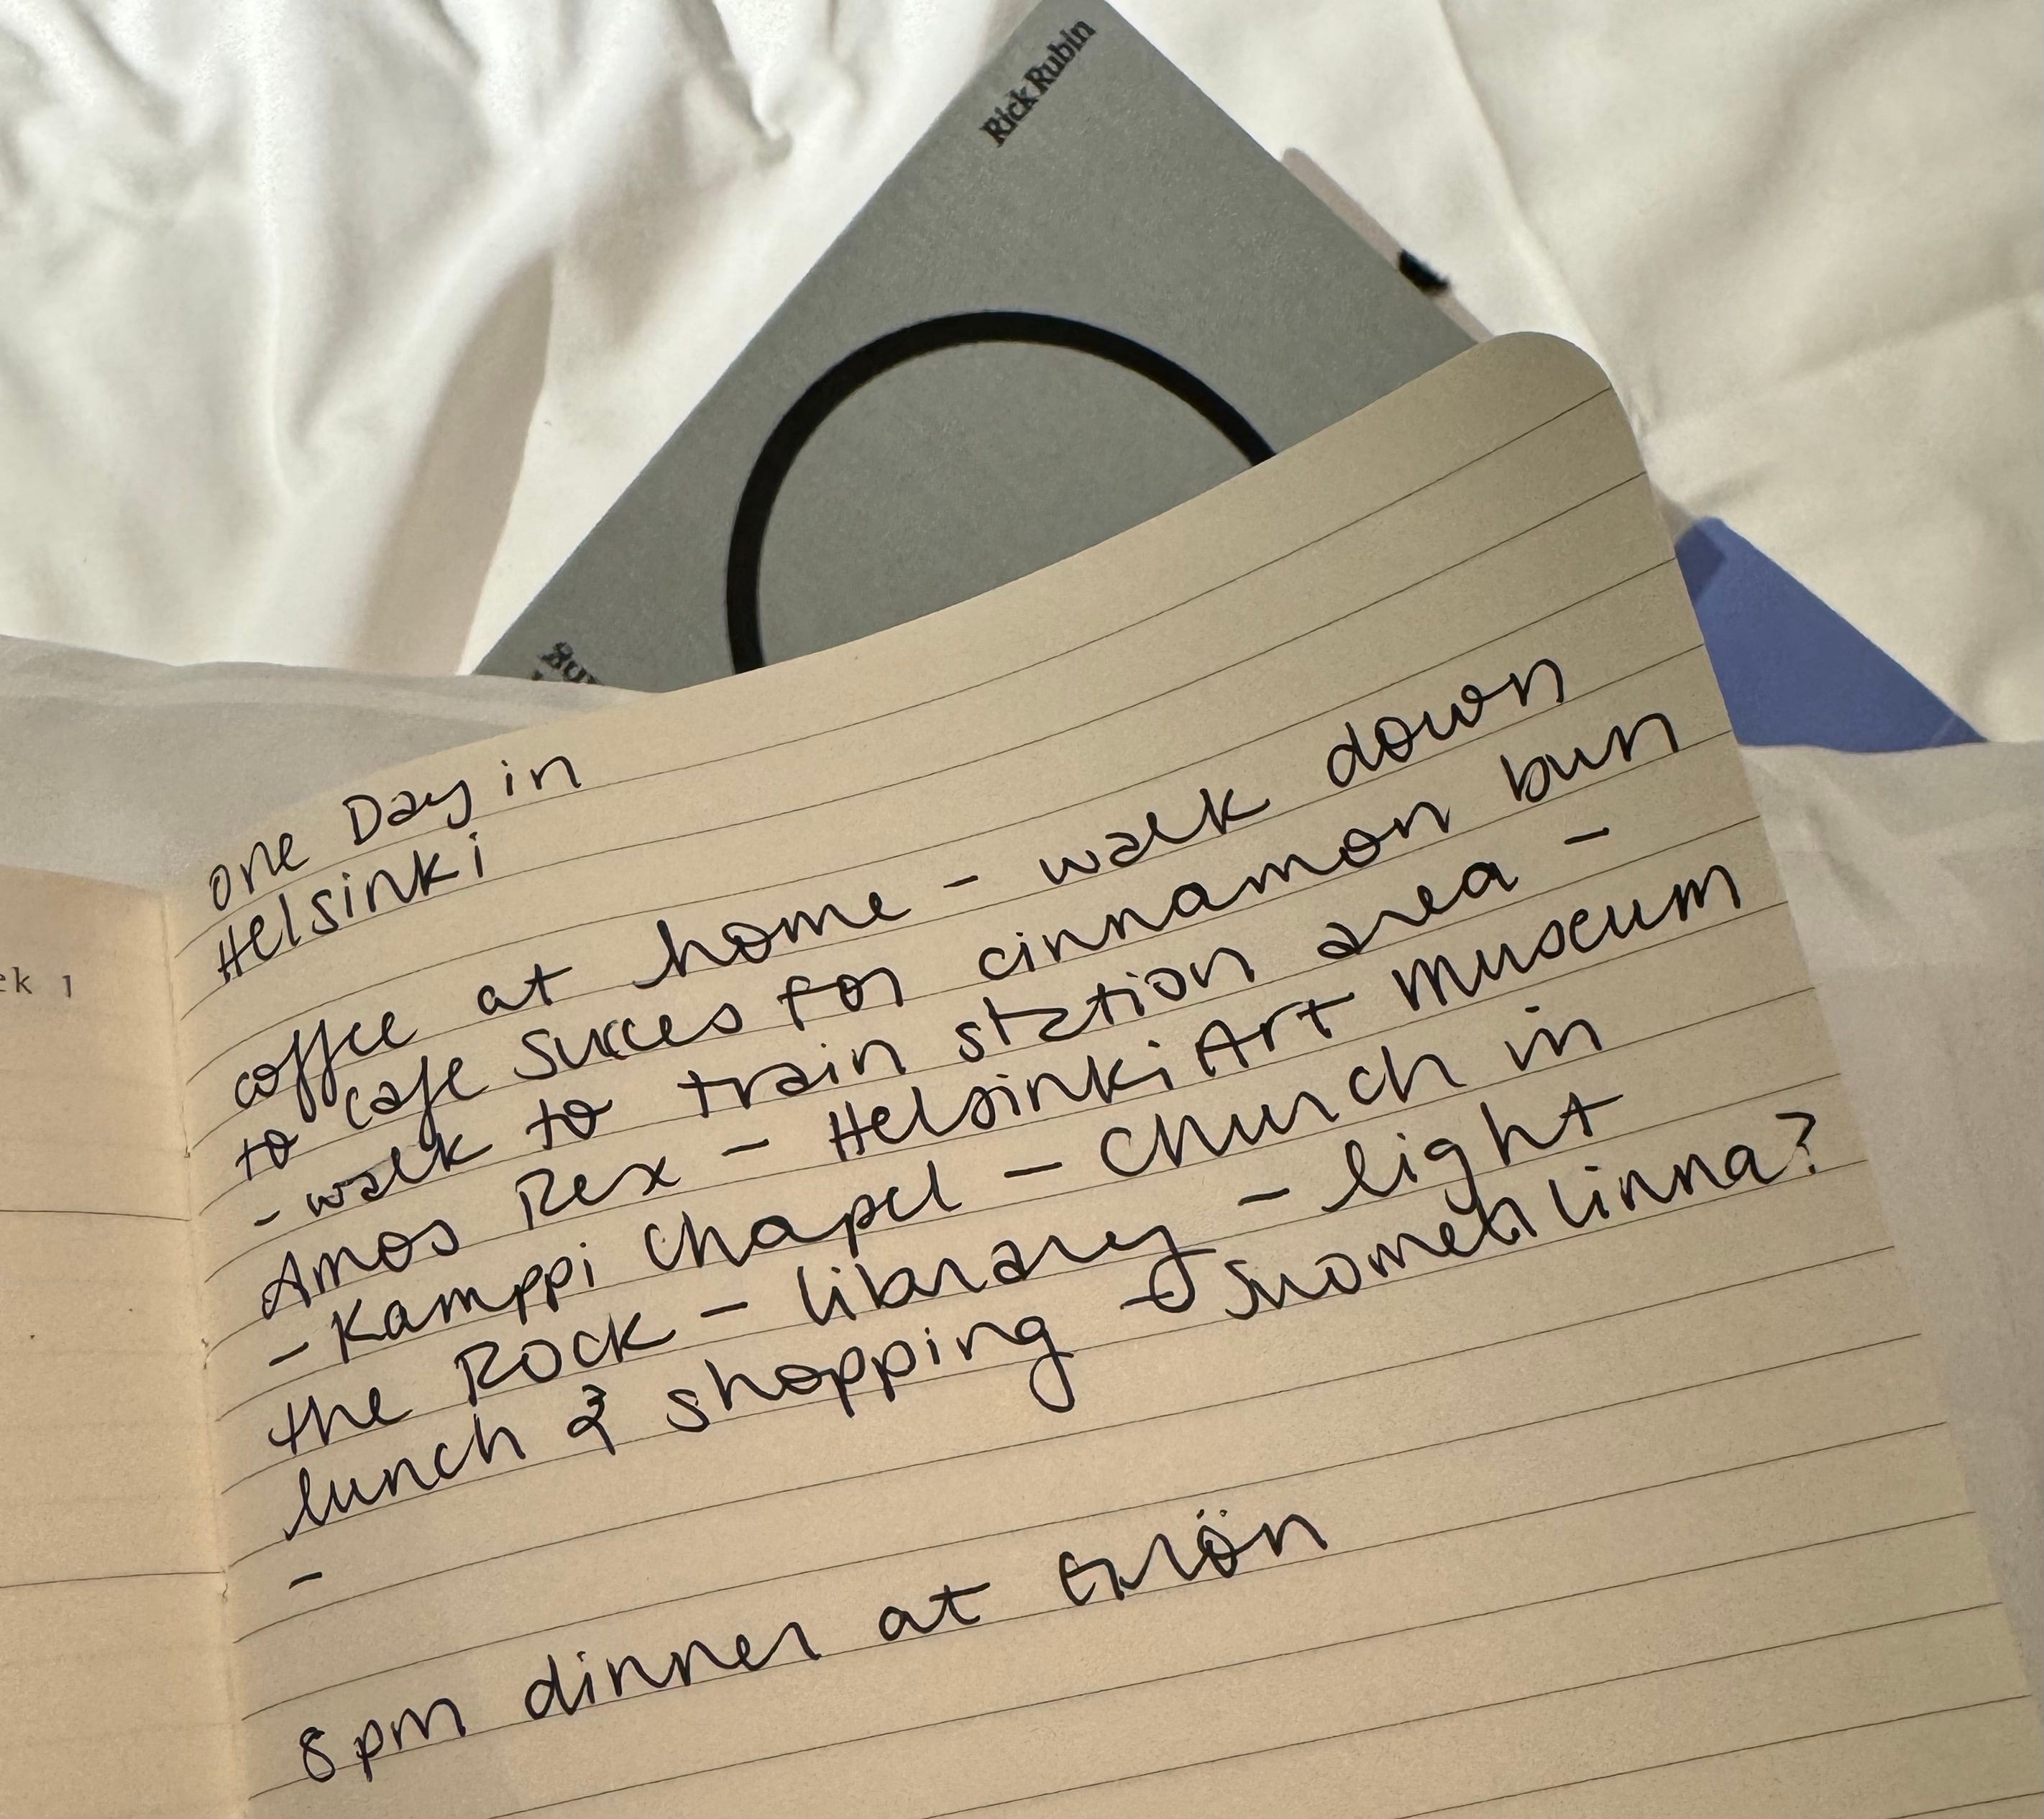 Rick Rubin
ek 1
one Day in
Helsinki
coffee at home - walk down
to cafe Succes for cinnamon bun
- walk to train station area -
Amos Rex - Helsinki Art Museum
- Kamppi Chapel - Church in
the Rock - library - light
lunch & shopping - Suomenlinna?
-
8pm dinner at